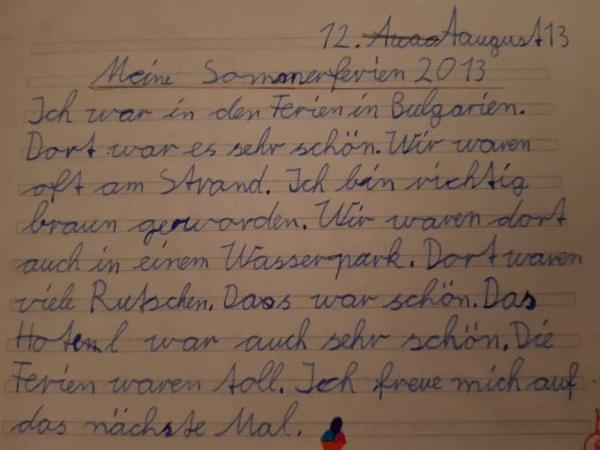 12. Taugust 13
Meine Sommerferien 2013
Ich war in den Ferien in Bulgarien.
Dort war es sehr schön. Wir waren
oft am Strand. Ich bin richtig
braun geworden. Wir waren dort
auch in einem Wasserpark. Dort waren
viele Rutschen. Das war schön. Das
Hotel war auch sehr schön. Die
Ferien waren toll. Ich freue mich auf
das nächste Mal.